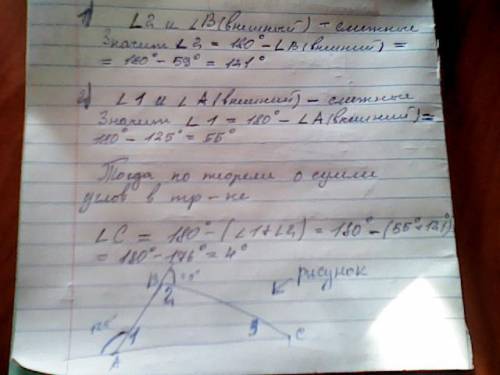 1) ∠2 и ∠B (внешний) – смежные
Значит ∠2 = 180° – ∠B (внешний) =
= 180° – 59° = 121°
2) ∠1 и ∠A (внешний) – смежные
Значит ∠1 = 180° – ∠A (внешний) =
180° – 125° = 55°
Тогда по теореме о сумме
углов в тр-ке
∠C = 180° – (∠1+∠2) = 180° – (55°+121°)
= 180° – 176° = 4°
рисунок
B
2
125
1
3
C
A